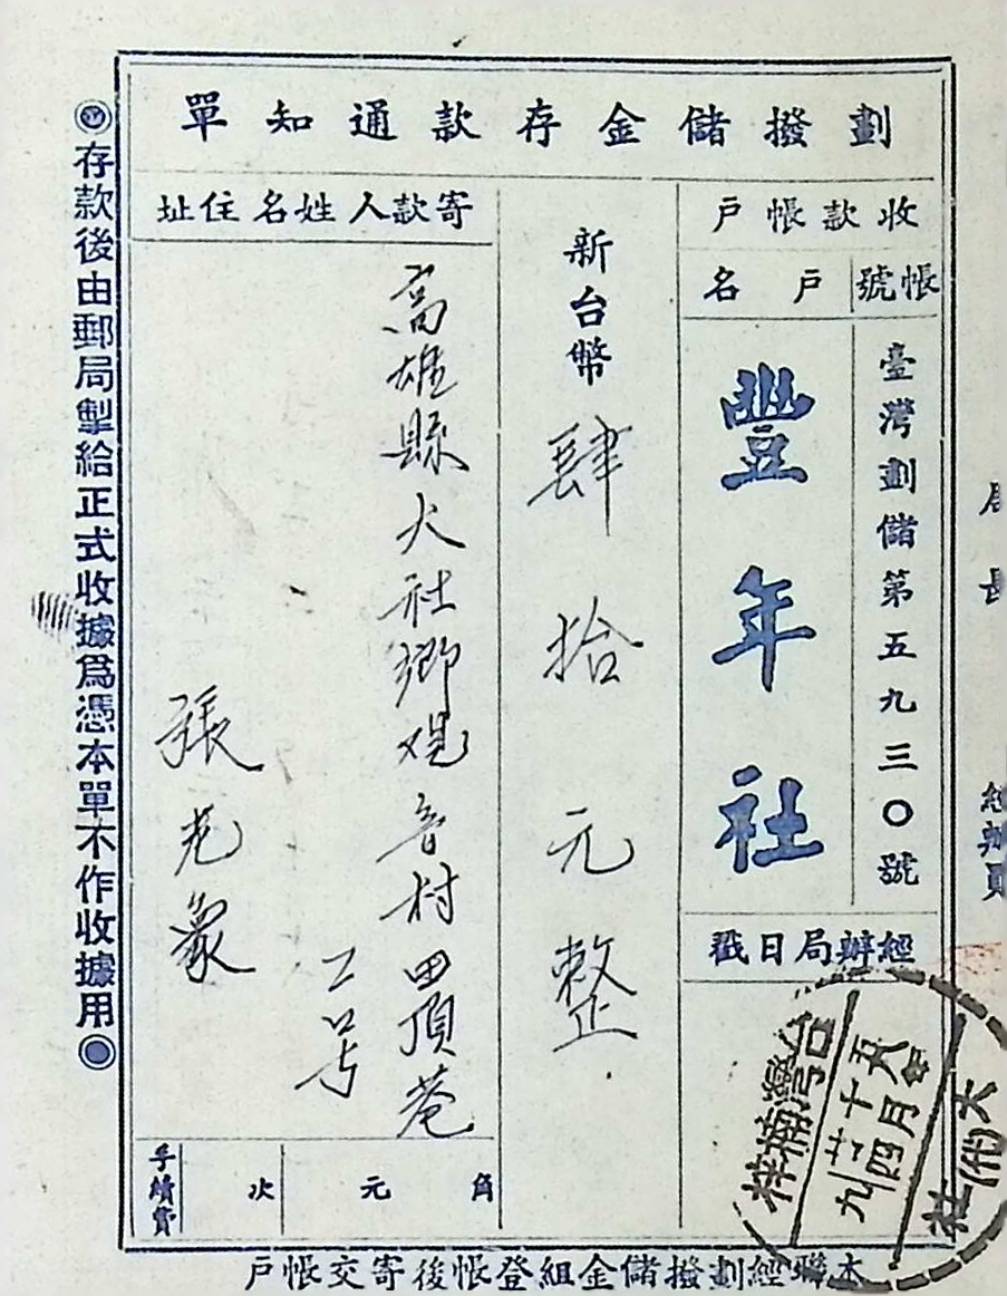 劃撥儲金存款通知單
收款帳戶
帳號
戶名
臺灣劃儲第五九三〇號
豐年社
經辦局日戳
新台幣
肆拾元整
寄款人姓名住址
高雄縣大社鄉观音村田頂菴
工号
張
手續費
次
元
角
◎存款後由郵局掣給正式收據爲憑本單不作收據用◎
本聯經劃撥儲金組登帳後寄交帳戶
台灣楠梓
大社
局長
經辦員